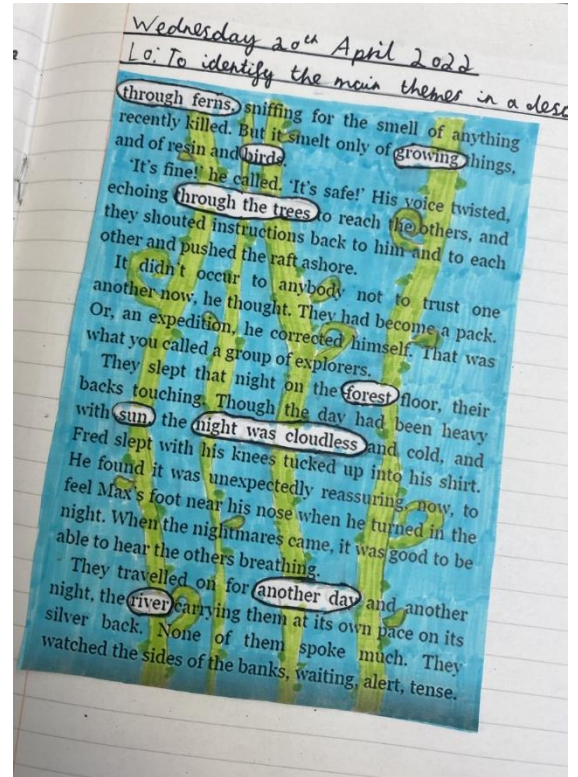 Wednesday 20th April 2022
Lo: To identify the main themes in a desc
through ferns, sniffing for the smell of anything
recently killed. But it smelt only of growing hings,
and of resin and birds.
'It's fine!' he called. 'It's safe!' His voice twisted,
echoing hrough the trees to reach he others, and
they shouted instructions back to him and to each
other and pushed the raft ashore.
It didn't occur to anybody not to trust one
another now, he thought. They had become a pack.
Or, an expedition, he corrected himself. That was
what you called a group of explorers.
They slept that night on the forest floor, their
backs touching. Though the day had been heavy
with sun, the night was cloudless and cold, and
Fred slept with his knees tucked up into his shirt.
He found it was unexpectedly reassuring, now, to
feel Max's foot near his nose when he turned in the
night. When the nightmares came, it was good to be
able to hear the others breathing.
They travelled on for another day and another
night, the river carrying them at its own pace on its
silver back. None of them spoke much. They
watched the sides of the banks, waiting, alert, tense.